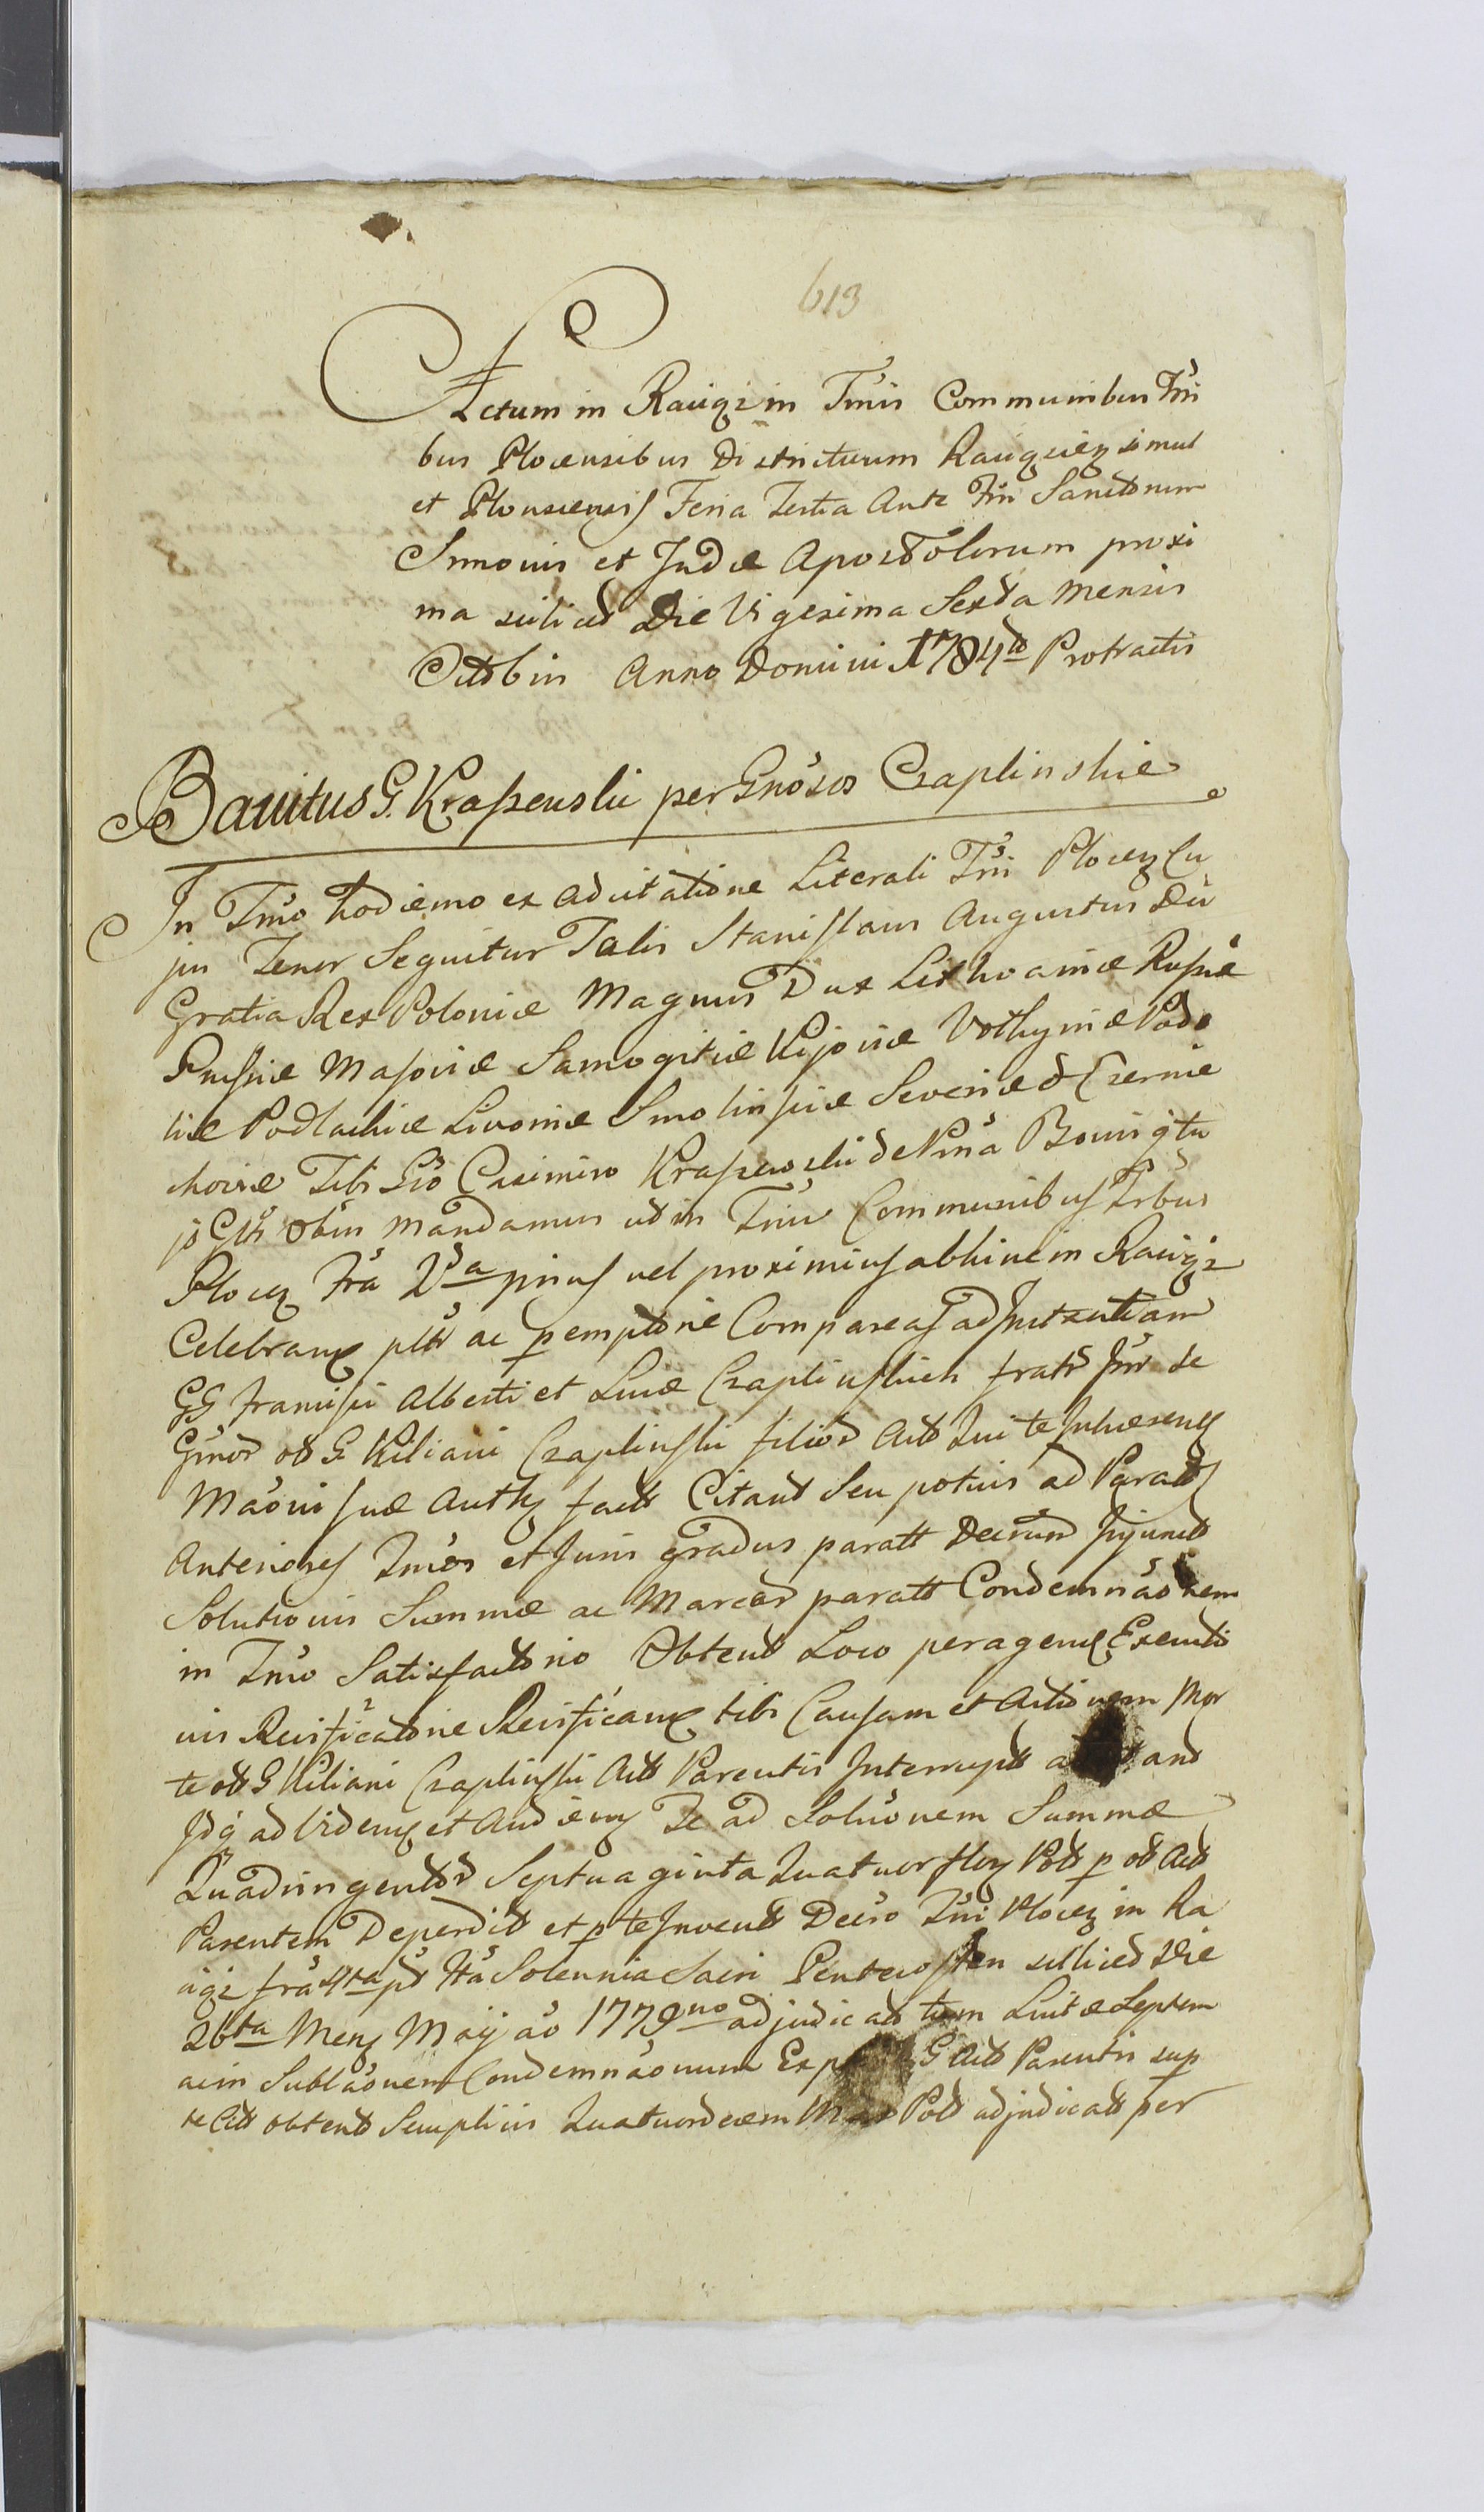 613
Actum in Raciąz in Tmis Communibus Trri
bus Plocensibus Districtuum Raciązien simul
et Plonscensis Feria Tertia Ante Ftm Sanctorum
Simonis et Judæ Apostolorum proxi
ma scilicet Die Vigesima Sexta Mensis
Octobris Anno Domini 1784to Protractis
Bannitus G. Kraszewski per Gnosos Czaplinskie
In Tmo hodierno ex Adcitatione Literali Trri Plocen Cu
jus Tenor Sequitur Talis Stanislaus Augustus Dei
Gratia Rex Poloniæ Magnus Dux Lithvaniæ Russiæ
Prussiæ Masoviæ Samogitiæ Kijoviæ Volhyniæ Podo
liæ Podlachiæ Livoniæ Smolinsciæ Severiæ & Czernie
choviæ Tibi Gso Casimiro Kraszewski de Psna Bonis qtu
js Gtr obus Mandamus ut in Tmis Communibus Trbus
Plocen Fra 2da prius vel proximius abhinc in Raciąz
Celebran pltr ac pemptorie Compareas ad Instantiam
GG Francisci Alberti et Lucæ Czaplinskich fratr Inr se
Gmor ol G Kiliani Czaplinski filior Act Qui te Inhæsenq
Maoni suæ Authq fact Citant Seu potius ad Parats
Anteriores Tmos et Juris gradus paratt Decrum Injunct
Solutionis Summæ ac Marcar paratt Condemnaonem
in Tmo Satisfactorio Obtent Loco peragenq Executio
nis Reisficatorie Reisficanq tibi Causam et Actionem Mor
te olt G Kiliani Czaplinski Act Parentis Interrupt
Idq ad Videnq et Audienq Te ad Soluonem Summæ
Quadringentor Septuaginta Quatuor flor Polt p olt Act
Parentem Deperdit et p te Invent Decro Trri Plocen in Ra
ciąz fra 4ta pt Fta Solennia Sacri Pentecosten scilicet Die
26ta Mens Maij ao 1779no adjudicat tum Luitæ Septem
ac in Sublaonem Condemnaonum Ex G Act Parentis sup
te Citt obtent Semplicis Quatuordecim Mar Polt adjudicatt per